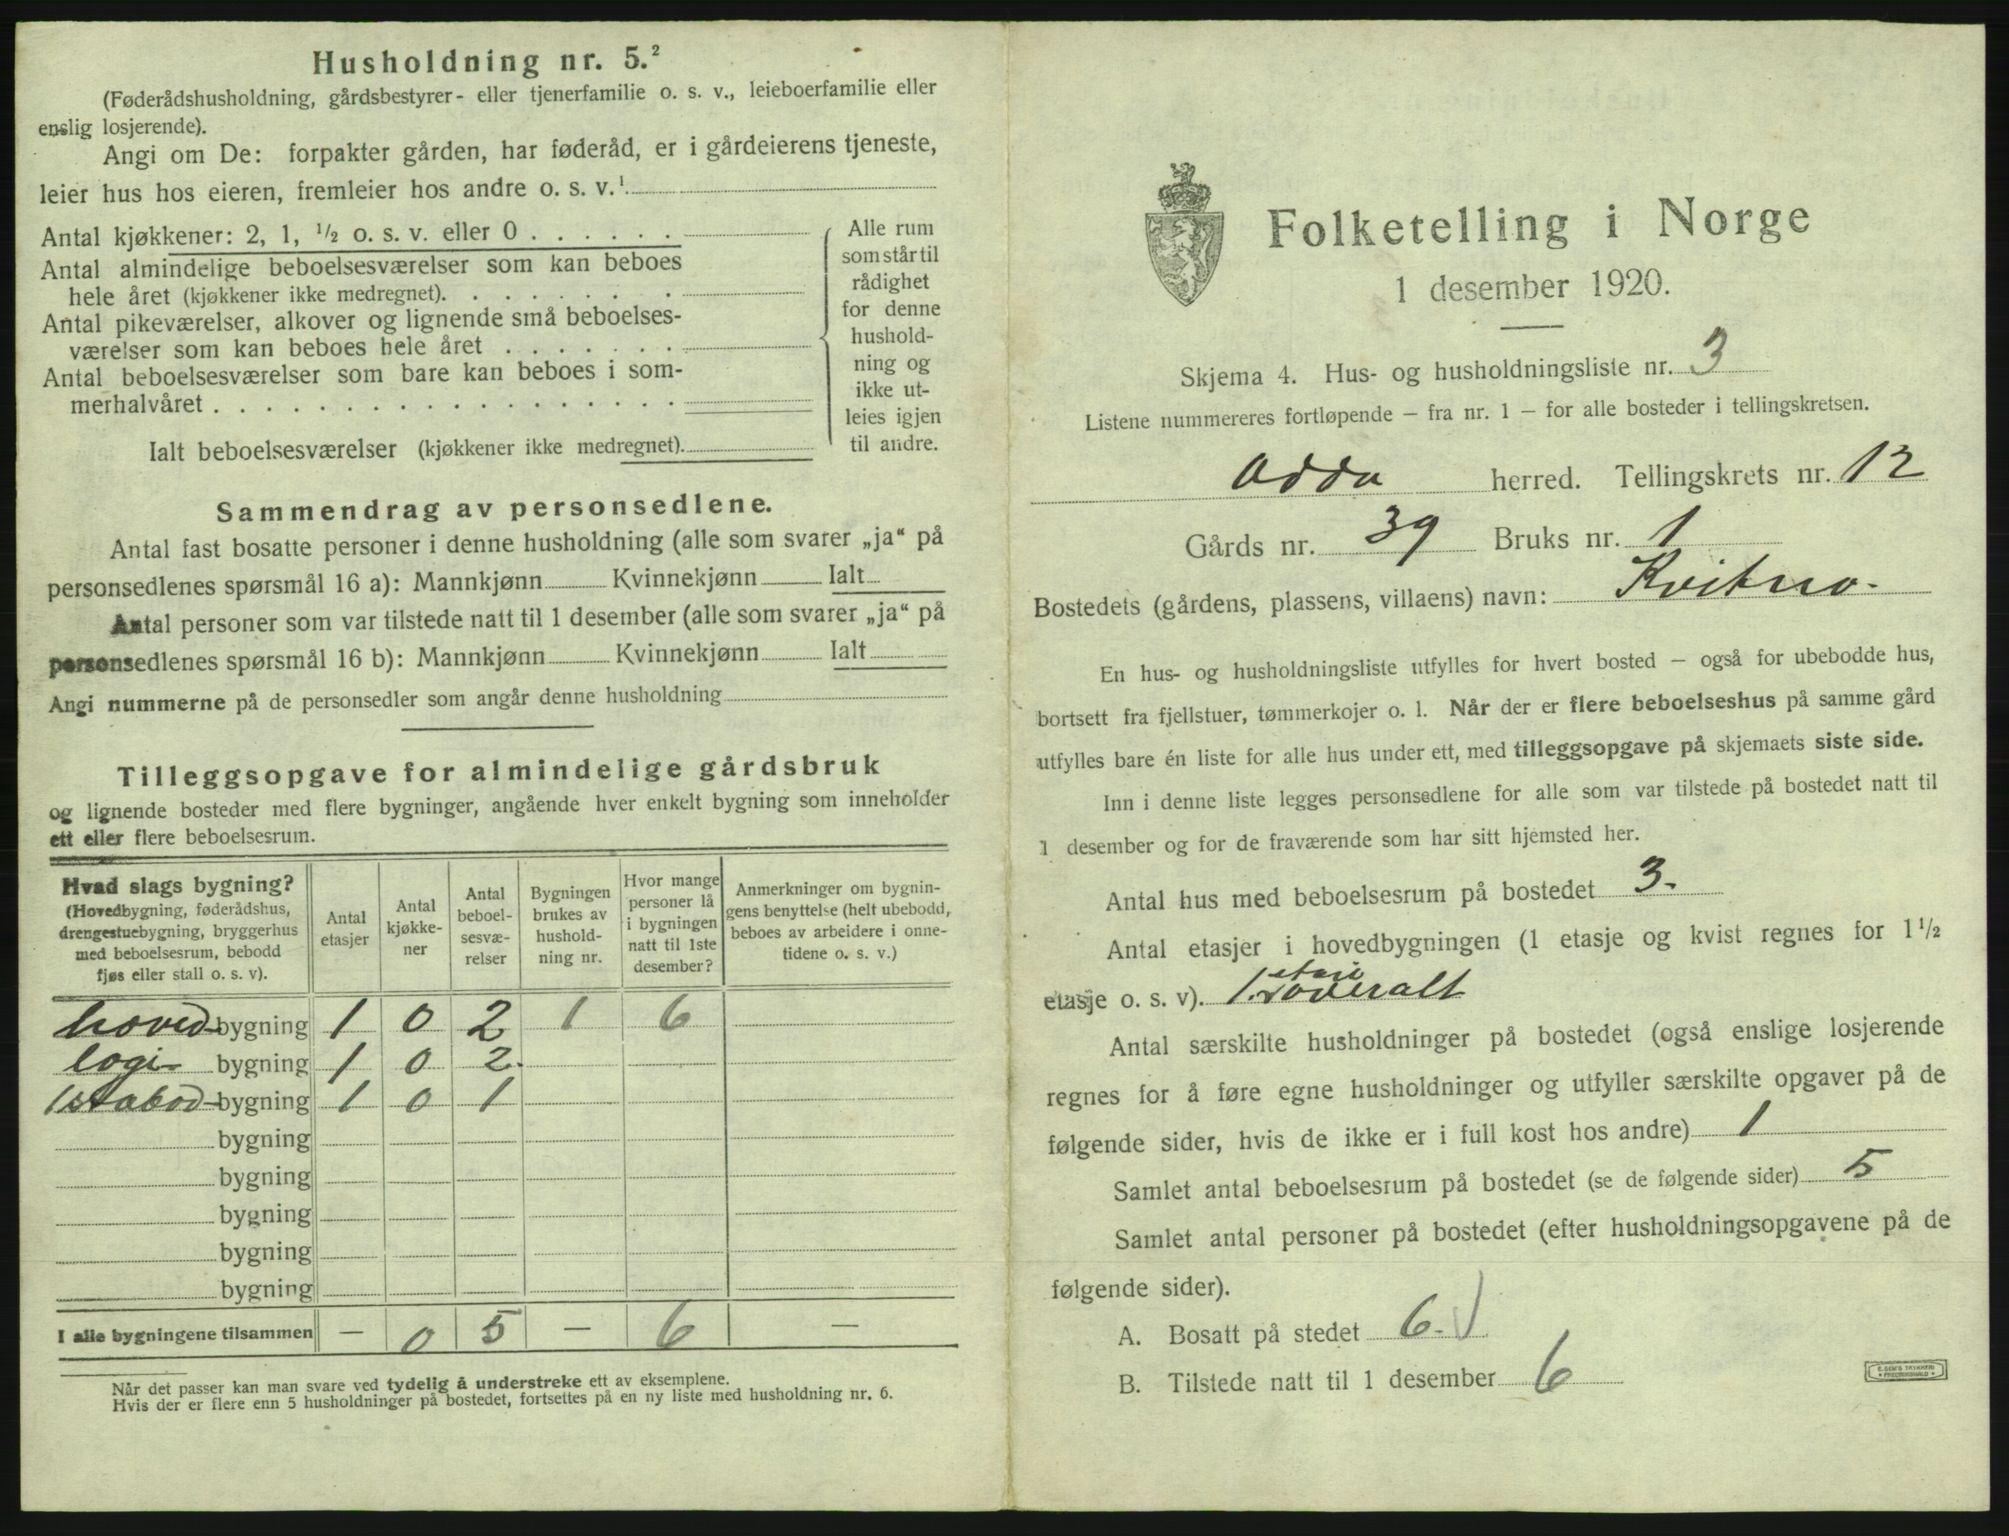 Husholdning nr. 5.²
(Føderådshusholdning, gårdsbestyrer- eller tjenerfamilie o. s. v., leieboerfamilie eller
enslig losjerende).
Angi om De: forpakter gården, har føderåd, er i gårdeierens tjeneste,
leier hus hos eieren, fremleier hos andre o. s. v.¹
Antal kjøkkener: 2, 1, ½ o. s. v. eller 0
Antal almindelige beboelsesværelser som kan beboes
hele året (kjøkkener ikke medregnet).
Antal pikeværelser, alkover og lignende små beboelses-
værelser som kan beboes hele året
Antal beboelsesværelser som bare kan beboes i som-
merhalvåret
Ialt beboelsesværelser (kjøkkener ikke medregnet).
Alle rum
som står til
rådighet
for denne
hushold-
ning og
ikke ut-
leies igjen
til andre.
Sammendrag av personsedlene.
Antal fast bosatte personer i denne husholdning (alle som svarer „ja“ på
personsedlenes spørsmål 16 a): Mannkjønn Kvinnekjønn Ialt
Antal personer som var tilstede natt til 1 desember (alle som svarer „ja“ på
personsedlenes spørsmål 16 b): Mannkjønn Kvinnekjønn Ialt
Angi nummerne på de personsedler som angår denne husholdning
Tilleggsopgave for almindelige gårdsbruk
og lignende bosteder med flere bygninger, angående hver enkelt bygning som inneholder
ett eller flere beboelsesrum.
Hvad slags bygning?
(Hovedbygning, føderådshus,
drengestuebygning, bryggerhus
med beboelsesrum, bebodd
fjøs eller stall o. s. v).
Antal
etasjer
Antal
kjøkke-
ner
Antal
beboel-
sesvæ-
relser
Bygningen
brukes av
hushold-
ning nr.
Hvor mange
personer lå
i bygningen
natt til 1ste
desember?
Anmerkninger om bygnin-
gens benyttelse (helt ubebodd,
beboes av arbeidere i onne-
tidene o. s. v.)
hoved- bygning 1 0 2 1 6
logi- bygning 1 0 2.
1 stabod- bygning 1 0 1
bygning
bygning
bygning
bygning
bygning
I alle bygningene tilsammen — 0 5 — 6 —
Når det passer kan man svare ved tydelig å understreke ett av eksemplene.
Hvis der er flere enn 5 husholdninger på bostedet, fortsettes på en ny liste med husholdning nr. 6.
Folketelling i Norge
1 desember 1920.
Skjema 4. Hus- og husholdningsliste nr. 3
Listene nummereres fortløpende — fra nr. 1 — for alle bosteder i tellingskretsen.
Odda herred. Tellingskrets nr. 12
Gårds nr. 39 Bruks nr. 1
Bostedets (gårdens, plassens, villaens) navn: Kvitno.
En hus- og husholdningsliste utfylles for hvert bosted — også for ubebodde hus,
bortsett fra fjellstuer, tømmerkojer o. l. Når der er flere beboelseshus på samme gård
utfylles bare én liste for alle hus under ett, med tilleggsopgave på skjemaets siste side.
Inn i denne liste legges personsedlene for alle som var tilstede på bostedet natt til
1 desember og for de fraværende som har sitt hjemsted her.
Antal hus med beboelsesrum på bostedet 3.
Antal etasjer i hovedbygningen (1 etasje og kvist regnes for 1½
etasje o. s. v). 1. overalt
Antal særskilte husholdninger på bostedet (også enslige losjerende
regnes for å føre egne husholdninger og utfyller særskilte opgaver på de
følgende sider, hvis de ikke er i full kost hos andre) 1
Samlet antal beboelsesrum på bostedet (se de følgende sider) 5
Samlet antal personer på bostedet (efter husholdningsopgavene på de
følgende sider).
A. Bosatt på stedet 6.
B. Tilstede natt til 1 desember 6